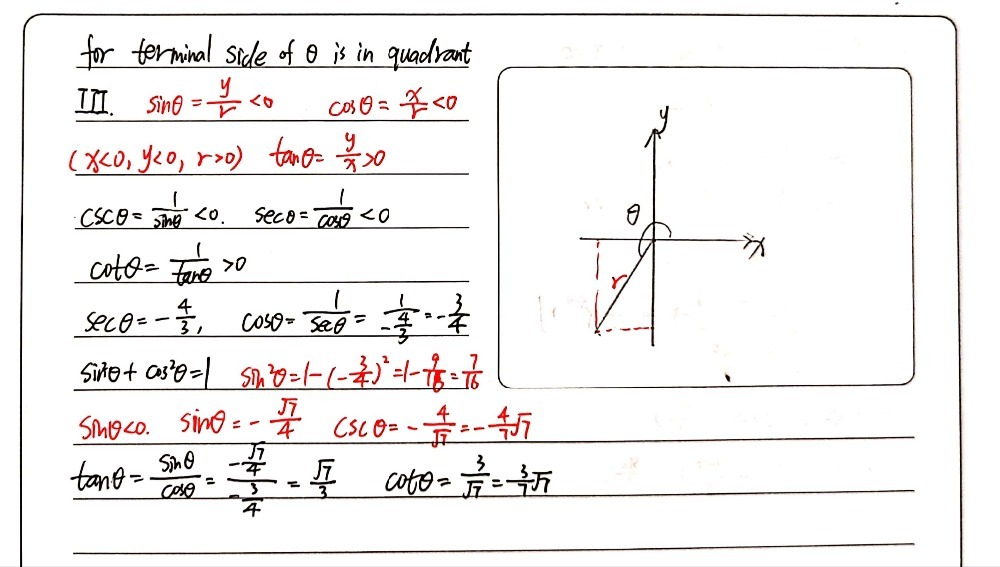 for terminal side of θ is in quadrant
III. sinθ = y/r <0 cosθ = x/r <0
(x<0, y<0, r>0) tanθ = y/x >0
cscθ = 1/sinθ <0. secθ = 1/cosθ <0
cotθ = 1/tanθ >0
secθ = -4/3, cosθ = 1/secθ = 1/(-4/3) = -3/4
sin²θ + cos²θ = 1 sin²θ = 1-(-3/4)² = 1-9/16 = 7/16
sinθ<0. sinθ = -√7/4 cscθ = -4/√7 = -4/7√7
tanθ = sinθ/cosθ = (-√7/4)/(-3/4) = √7/3 cotθ = 3/√7 = 3/7√7
y
θ
x
r